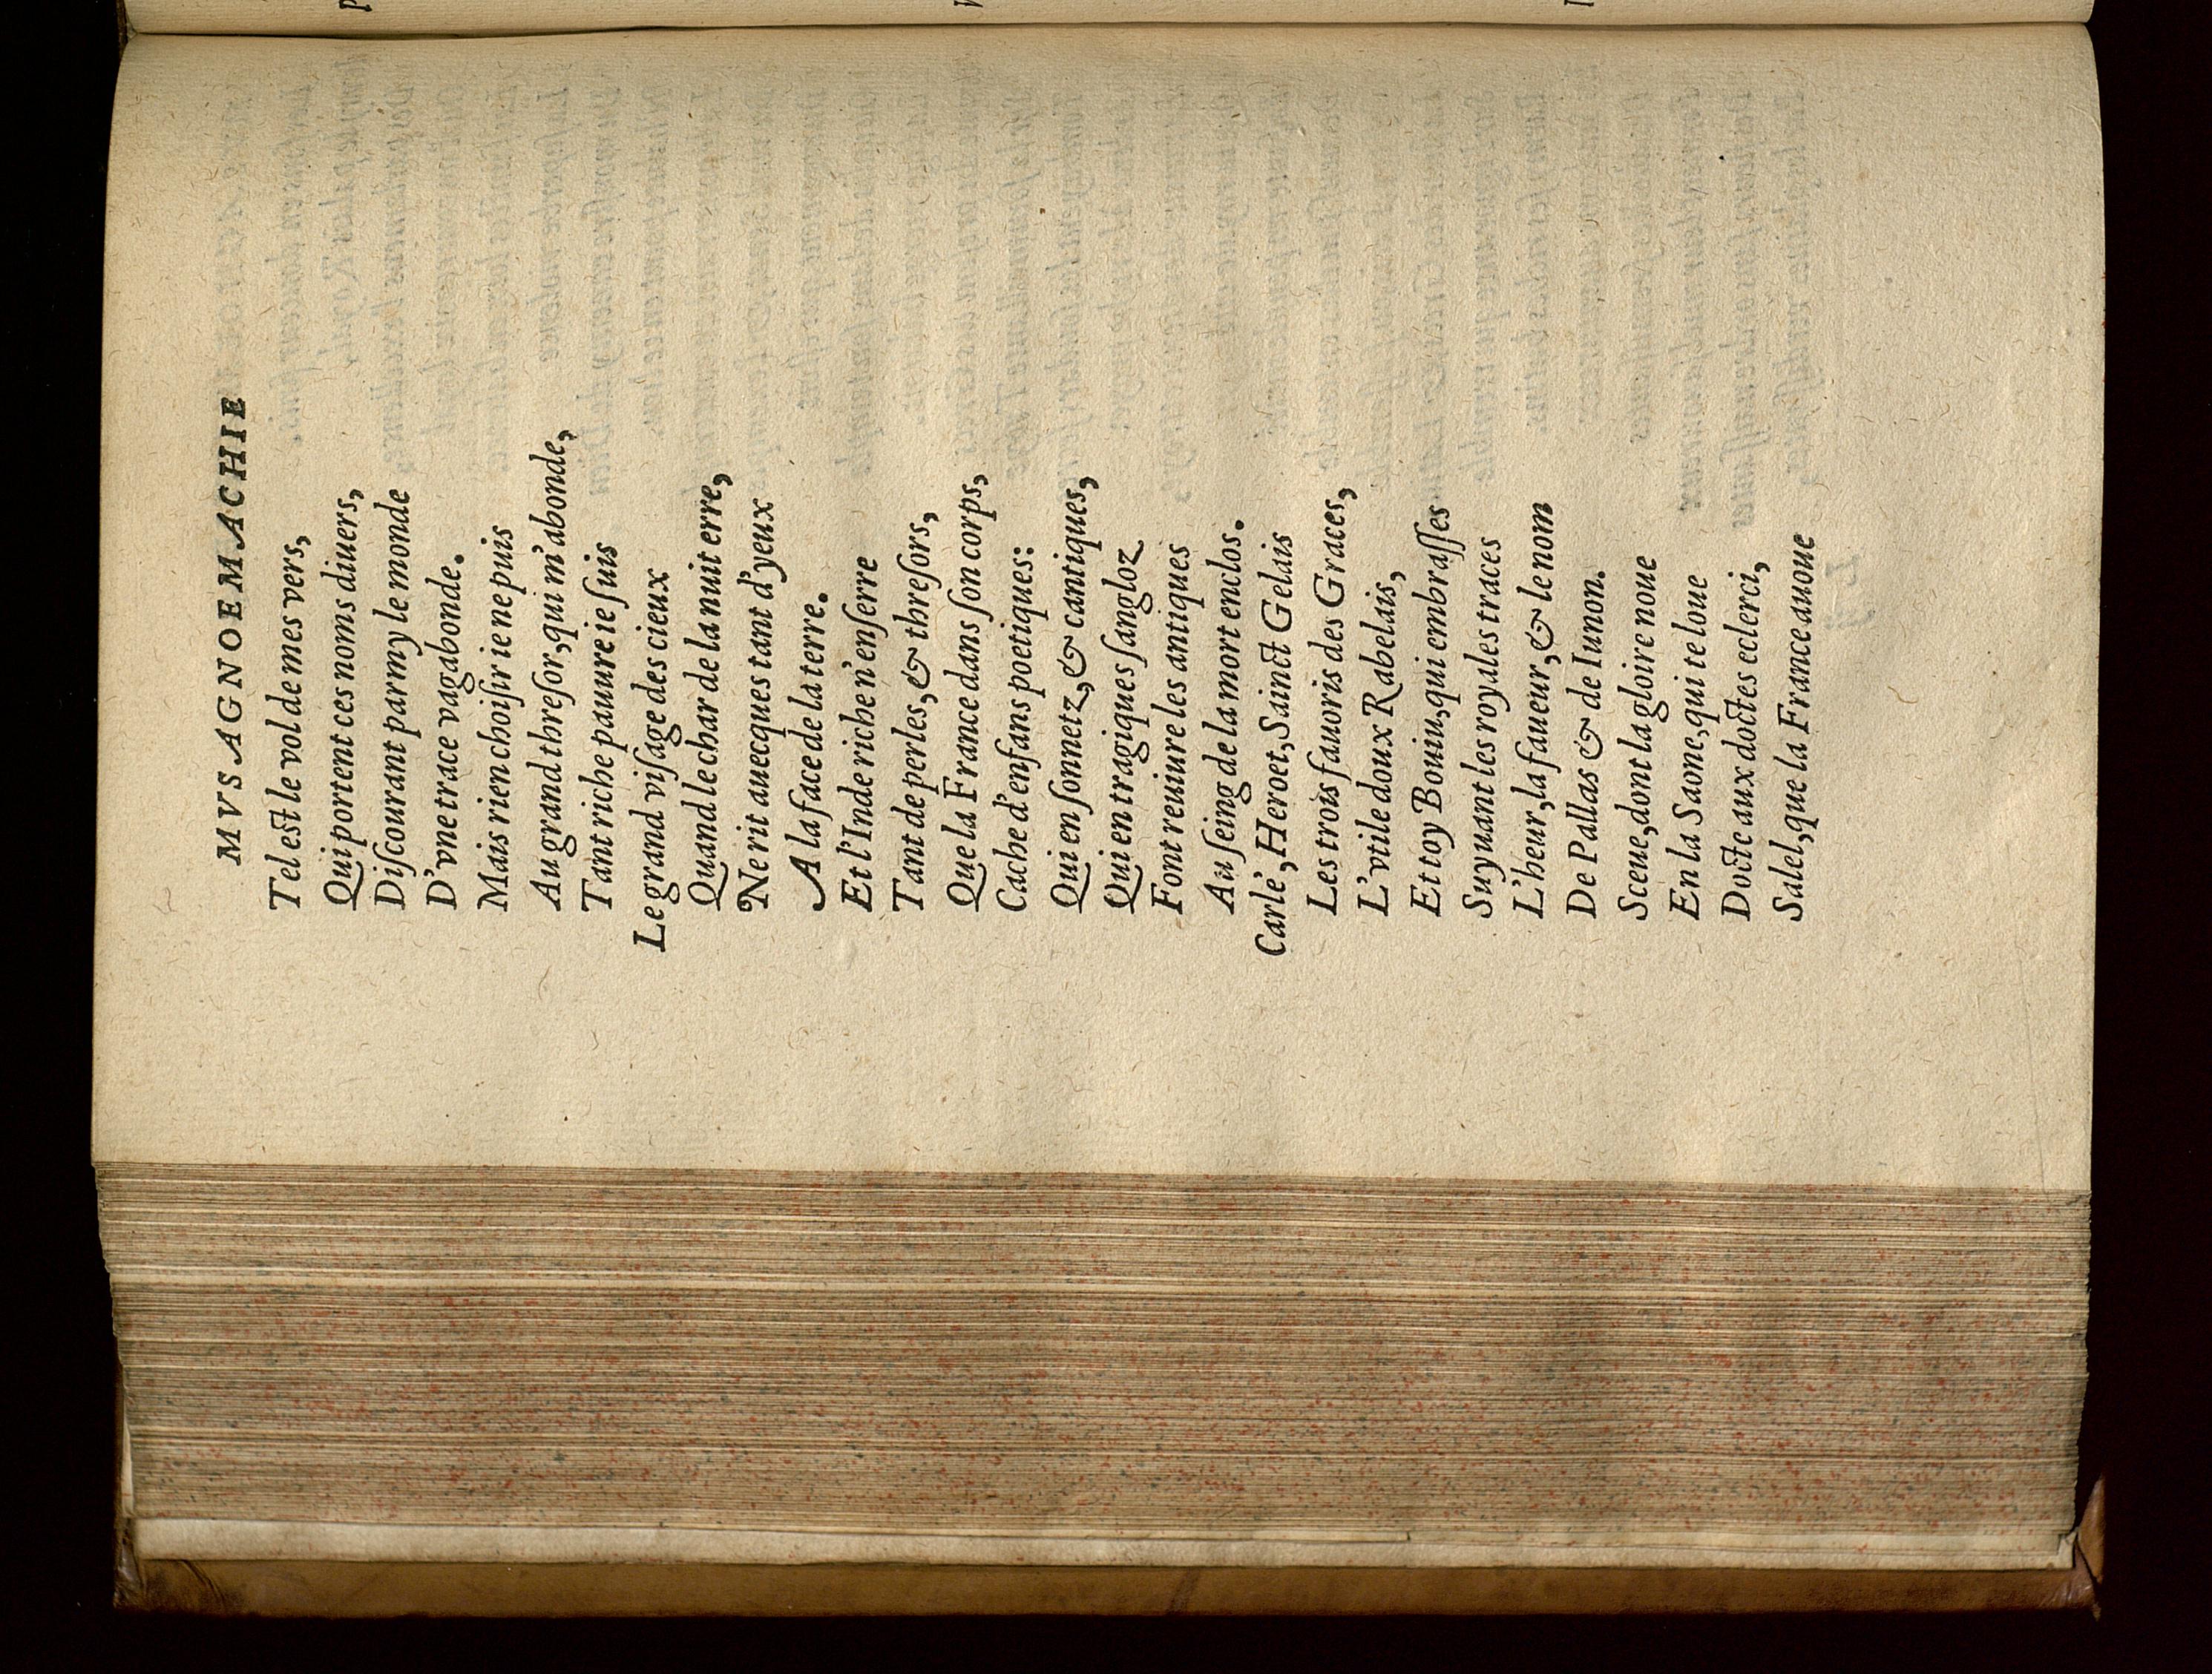 MVSAGNOEMACHIE
Tel est le vol de mes vers,
Qui portent ces noms diuers,
Diſcourant parmy le monde
D'vne trace vagabonde.
Mais rien choiſir ie ne puis
Au grand threſor, qui m'abonde,
Tant riche pauure ie ſuis
Le grand viſage des cieux
Quand le char de la nuit erre,
Ne rit auecques tant d'yeux
A la face de la terre.
Et l'Inde riche n'enſerre
Tant de perles, & threſors,
Que la France dans ſon corps,
Cache d'enfans poetiques:
Qui en ſonnetz, & cantiques,
Qui en tragiques ſangloz
Font reuiure les antiques
Au ſeing de la mort enclos.
Carle', Heroet, Sainct Gelais
Les trois fauoris des Graces,
L'vtile doux Rabelais,
Et toy Bouiu, qui embraſſes
Suyuant les royales traces
L'heur, la faueur, & le nom
De Pallas & de Iunon.
Sceue, dont la gloire noue
En la Saone, qui te loue
Docte aux doctes eclerci,
Salel, que la France auoue